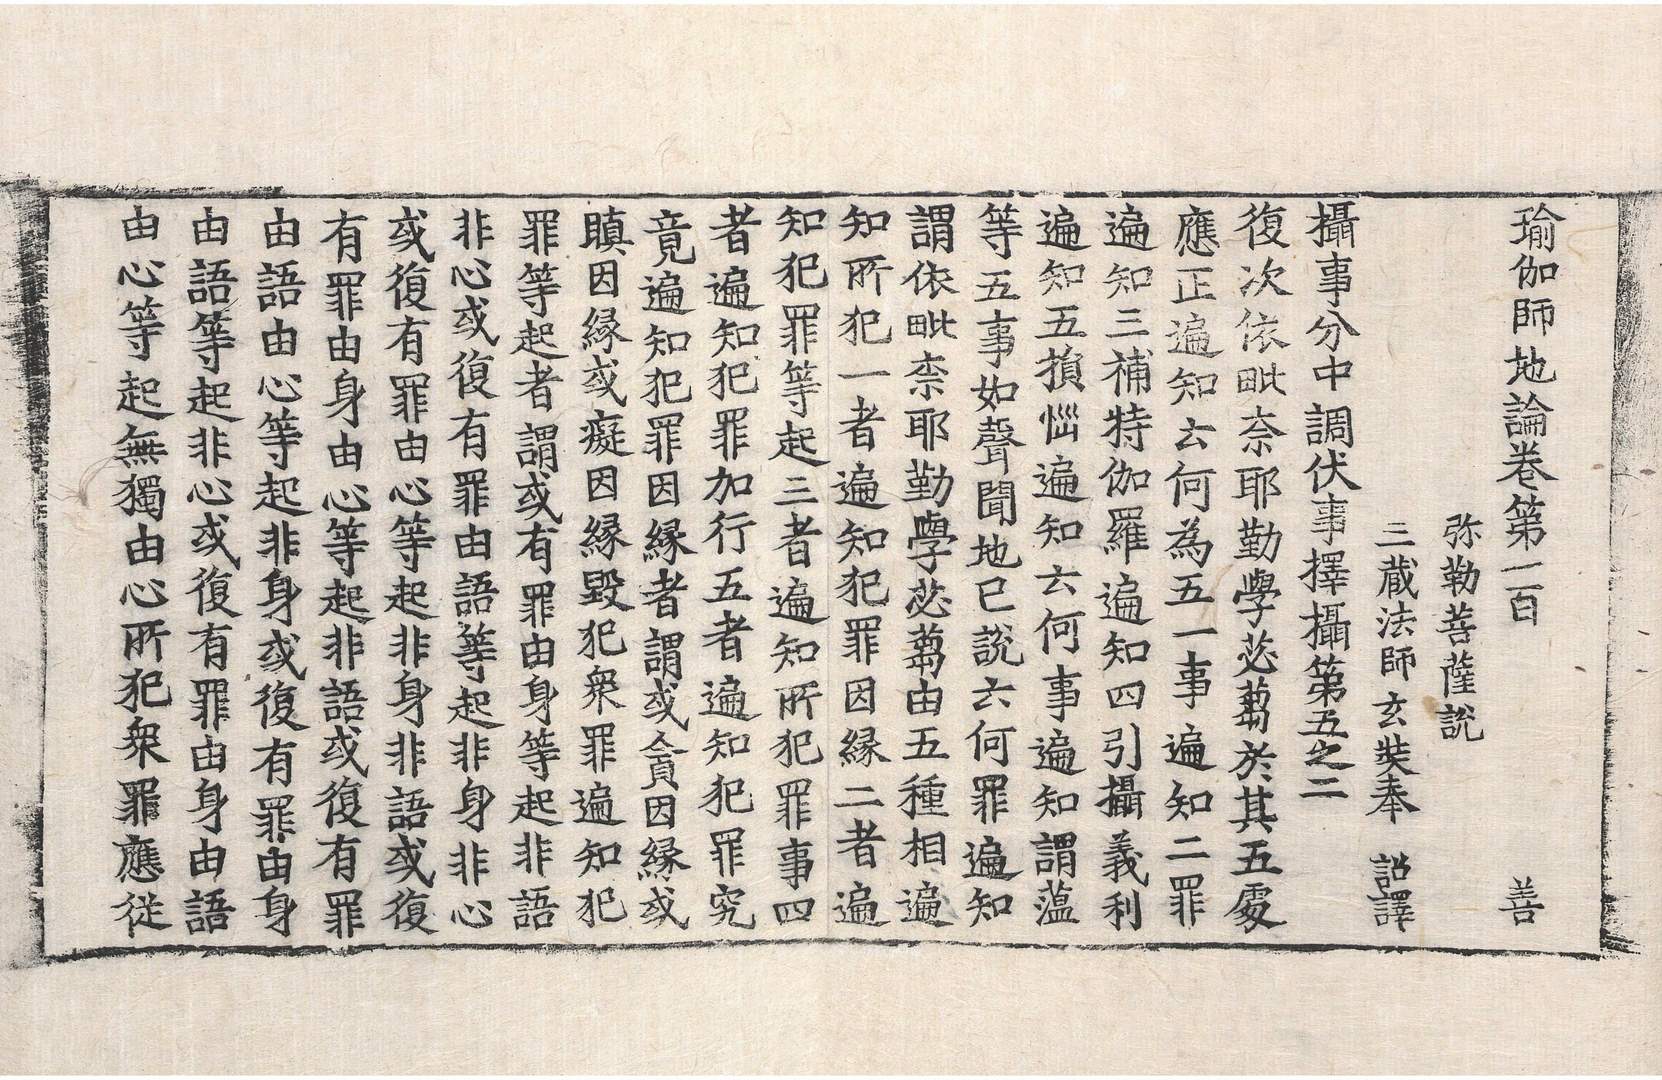 瑜伽師地論卷第一百　善
弥勒菩薩說
三藏法師玄奘奉　詔譯
攝事分中調伏事擇攝第五之二
復次依毗奈耶勤學苾蒭於其五處
應正遍知云何為五一事遍知二罪
遍知三補特伽羅遍知四引攝義利
遍知五損惱遍知云何事遍知謂蘊
等五事如聲聞地已說云何罪遍知
謂依毗柰耶勤學苾蒭由五種相遍
知所犯一者遍知犯罪因縁二者遍
知犯罪等起三者遍知所犯罪事四
者遍知犯罪加行五者遍知犯罪究
竟遍知犯罪因縁者謂或貪因縁或
瞋因縁或癡因縁毀犯衆罪遍知犯
罪等起者謂或有罪由身等起非語
非心或復有罪由語等起非身非心
或復有罪由心等起非身非語或復
有罪由身由心等起非語或復有罪
由語由心等起非身或復有罪由身
由語等起非心或復有罪由身由語
由心等起無獨由心所犯衆罪應從